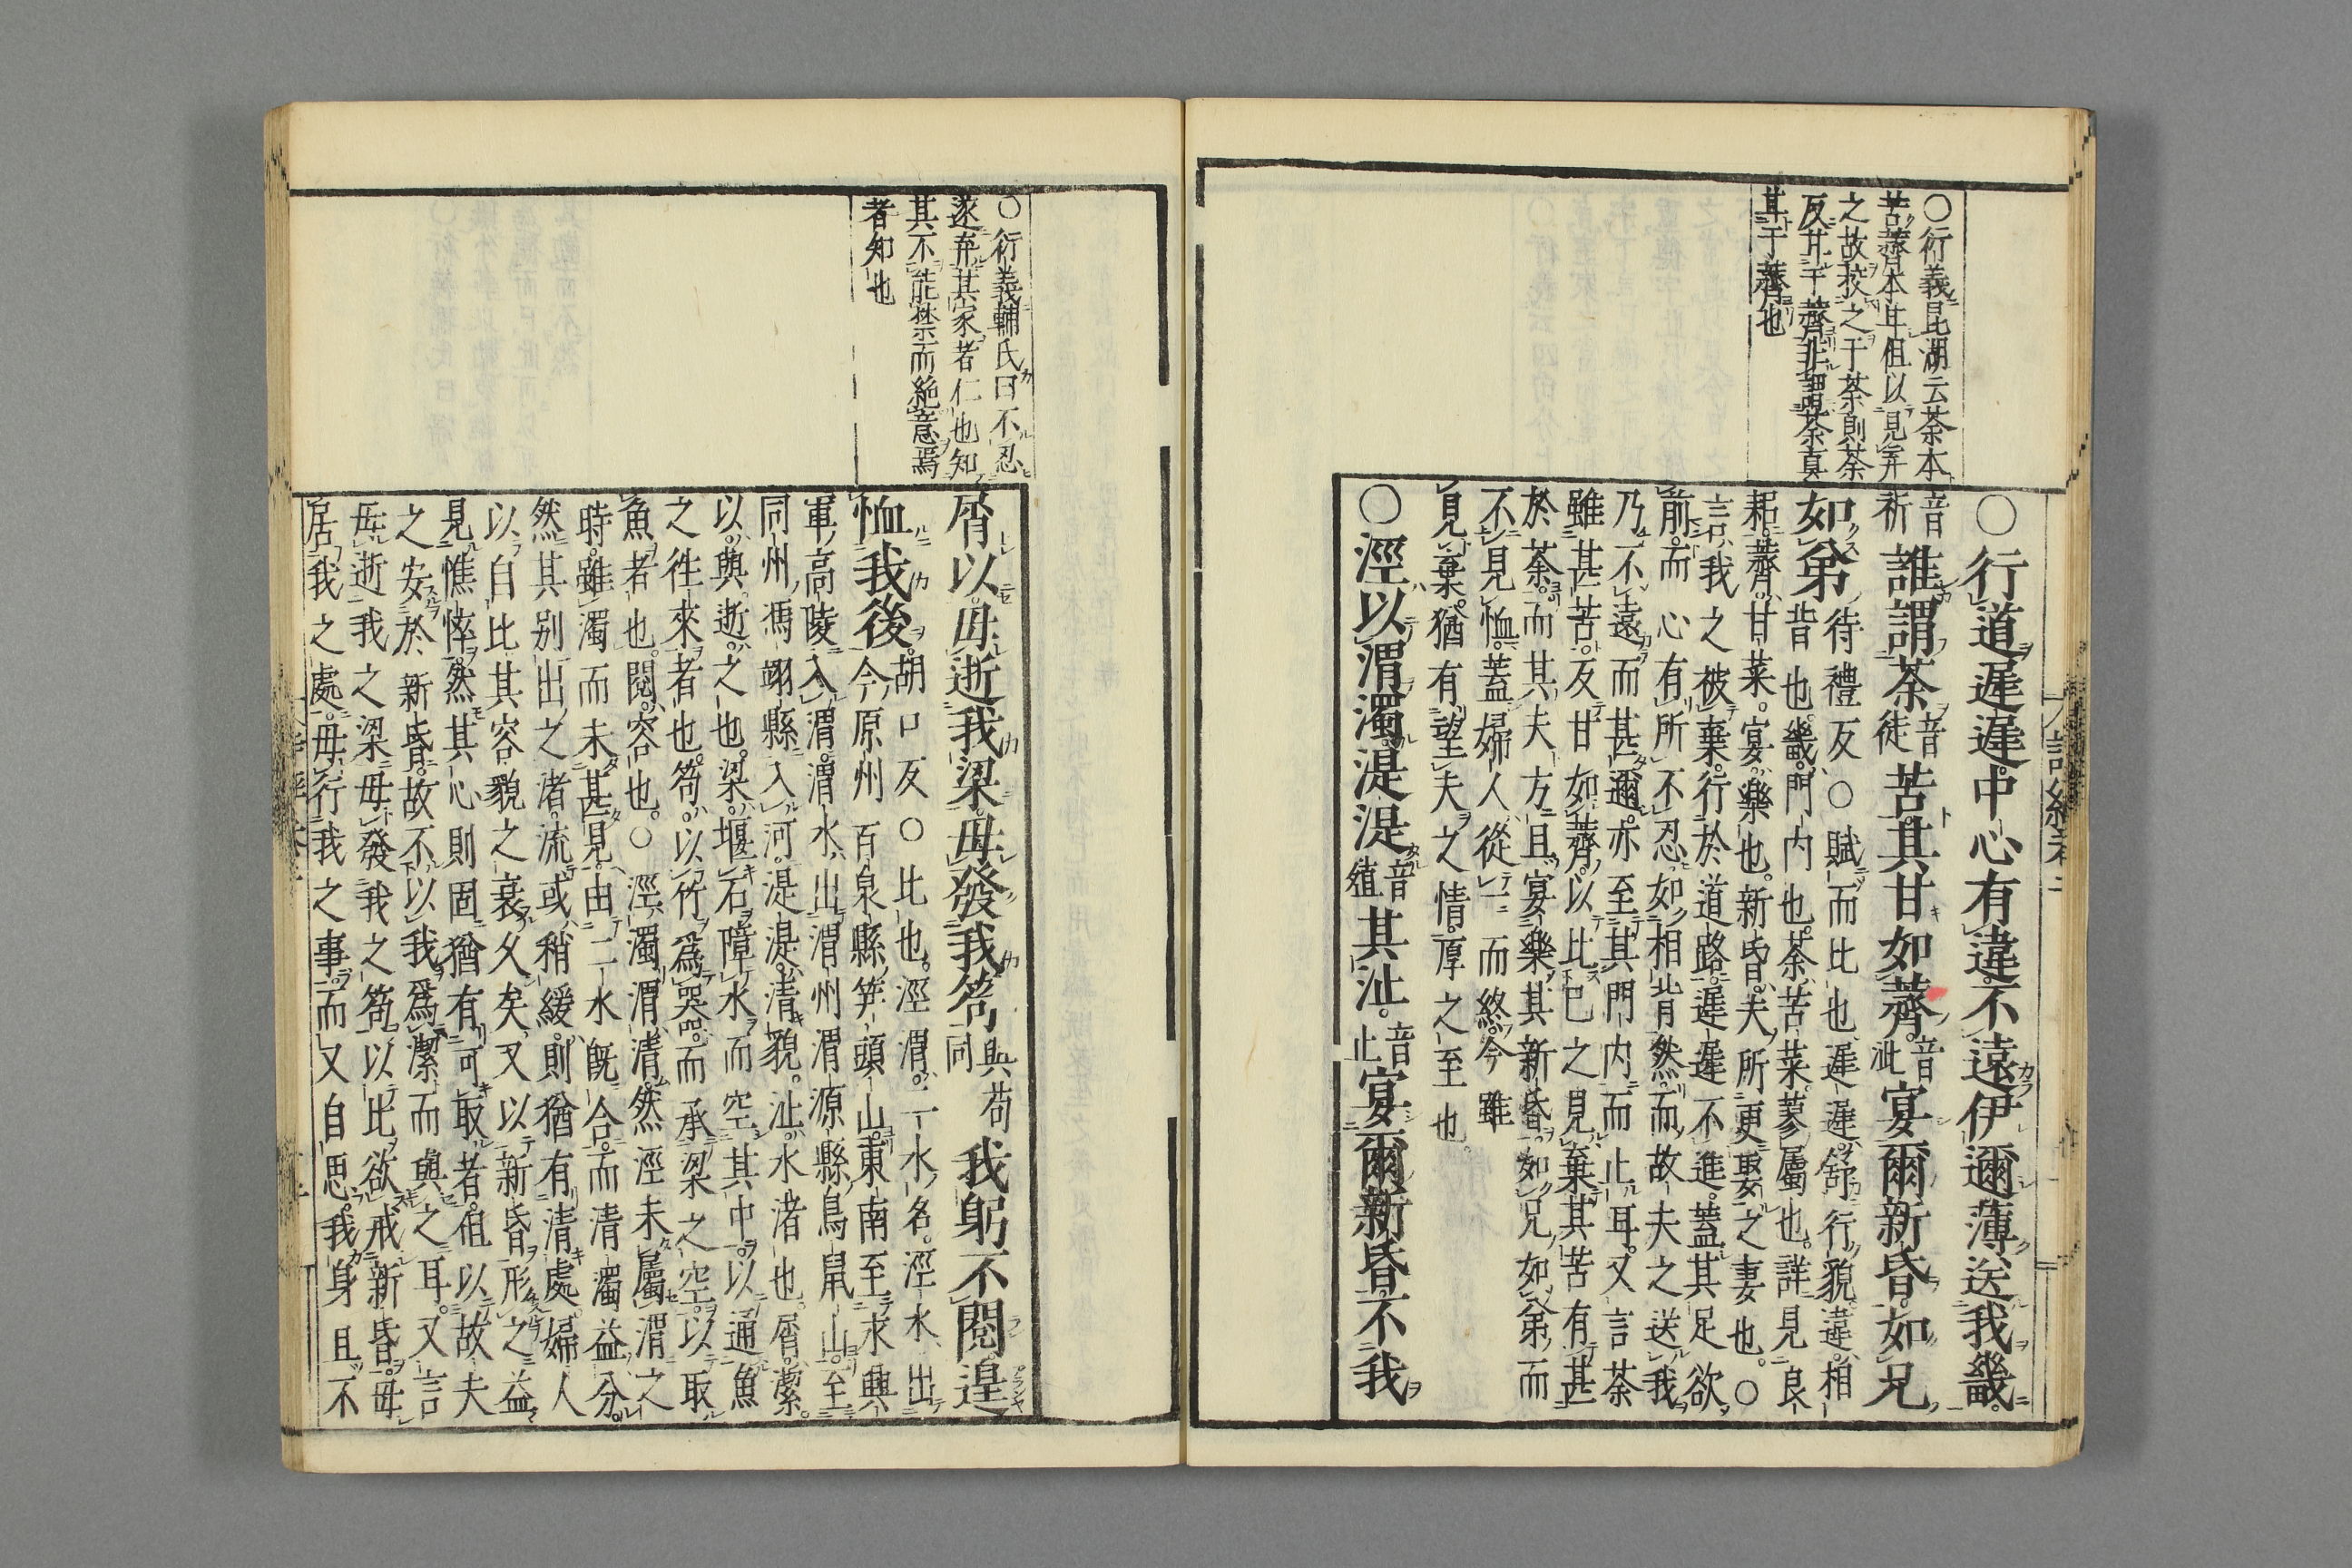 ○衍義昆湖云荼本
苦薺本甘但以見棄
之故挍之于荼則荼
反甘于薺非謂荼真
甘于薺也
○行道遲遲中心有違不遠伊邇薄送我畿
音祈誰謂荼音徒苦其甘如薺音泚宴爾新昏如兄
如弟待禮反○賦而比也遲遲舒行貌違相
背也畿門内也荼苦菜蓼屬也詳見良
耜薺甘菜宴樂也新昏夫所更娶之妻也○
言我之被棄行於道路遲遲不進蓋其足欲
前而心有所不忍如相背然而故夫之送我
乃不遠而甚邇亦至其門内而止耳又言荼
雖甚苦反甘如薺以比己之見棄其苦有甚
於荼而其夫方且宴樂其新昏如兄如弟而
不見恤蓋婦人從一而終今雖
見棄猶有望夫之情厚之至也
○涇以渭濁湜湜音殖其沚音止宴爾新昏不我
○衍義輔氏曰不忍
遂棄其家者仁也知
其不能禁而絶意焉
者知也
屑以毋逝我梁毋發我笱與苟同我躬不閱遑
恤我後胡口反○比也涇渭二水名涇水出
今原州百泉縣笄頭山東南至永興
軍高陵入渭渭水出渭州渭源縣鳥鼠山至
同州馮翊縣入河湜湜清貌沚水渚也屑潔
以與逝之也梁堰石障水而空其中以通魚
之徃來者也笱以竹爲器而承梁之空以取
魚者也閱容也○涇濁渭清然涇未屬渭之
時雖濁而未甚見由二水既合而清濁益分
然其别出之渚流或稍緩則猶有清處婦人
以自比其容貌之衰久矣又以新昏形之益
見憔悴然其心則固猶有可取者但以故夫
之安於新昏故不以我爲潔而與之耳又言
毋逝我之梁毋發我之笱以比欲戒新昏毋
居我之處毋行我之事而又自思我身且不